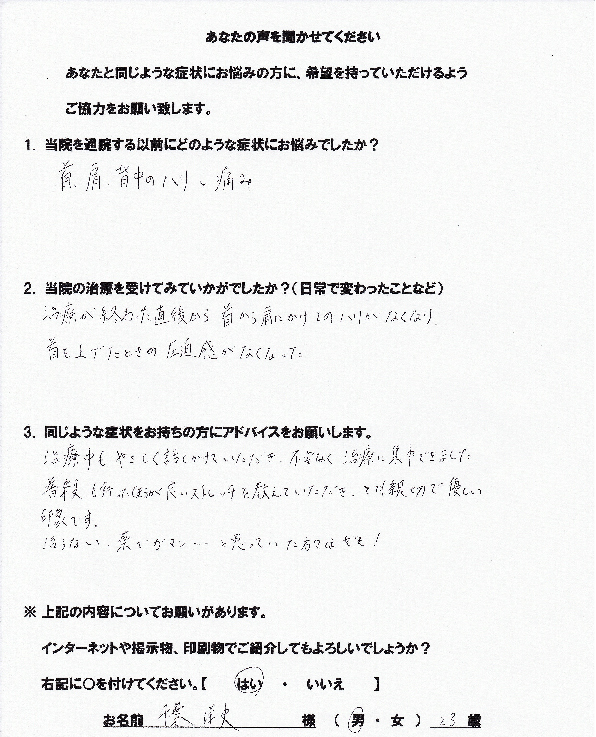 あなたの声を聞かせてください
あなたと同じような症状にお悩みの方に、希望を持っていただけるよう
ご協力をお願い致します。
1. 当院を通院する以前にどのような症状にお悩みでしたか？
首、肩、背中のハリ、痛み
2. 当院の治療を受けてみていかがでしたか？（日常で変わったことなど）
治療が終わった直後から首から肩にかけてのハリがなくなり、
首を上げたときの圧迫感がなくなった
3. 同じような症状をお持ちの方にアドバイスをお願いします。
治療中もやさしく話しかけていただき、不安なく治療に集中できました
普段も行ったほうが良いストレッチを教えていただき、とても親切で優しい
印象です。
治らない、薬でガマン… と思っていた方々は是非！
※ 上記の内容についてお願いがあります。
インターネットや掲示物、印刷物でご紹介してもよろしいでしょうか？
右記に○を付けてください。【 はい ・ いいえ 】
お名前 様 （ 男 ・ 女 ） 23 歳